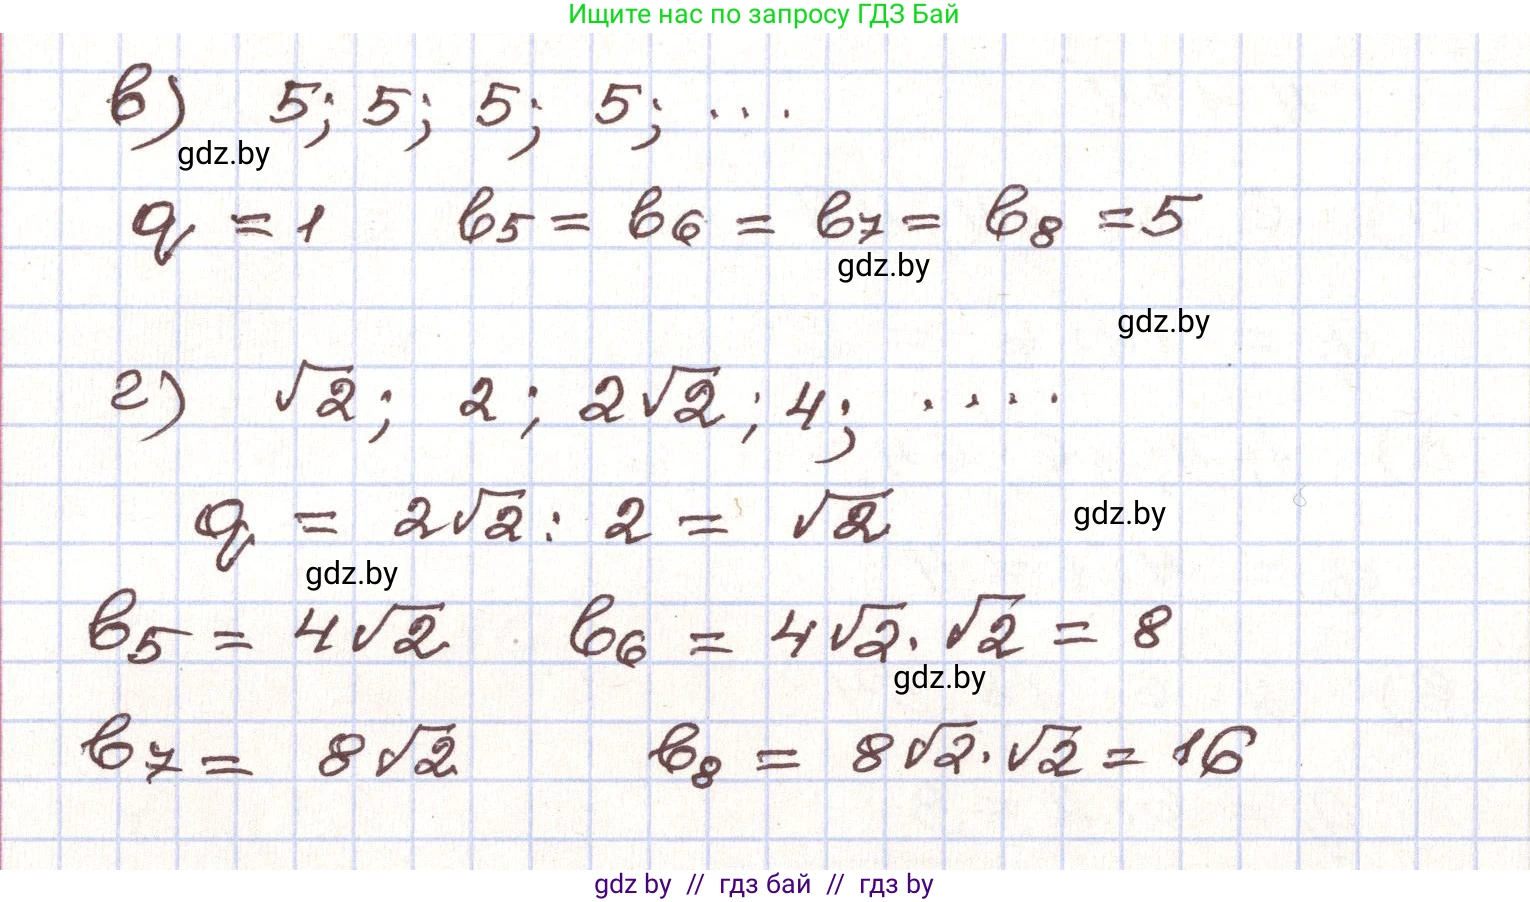 Ищите нас по запросу ГДЗ Бай
в) 5; 5; 5; 5; ...
gdz.by
q = 1 b₅ = b₆ = b₇ = b₈ = 5
gdz.by
gdz.by
г) √2; 2; 2√2; 4; ....
q = 2√2 : 2 = √2
gdz.by
gdz.by
b₅ = 4√2 b₆ = 4√2 · √2 = 8
gdz.by
b₇ = 8√2 b₈ = 8√2 · √2 = 16
gdz by // гдз бай // гдз by